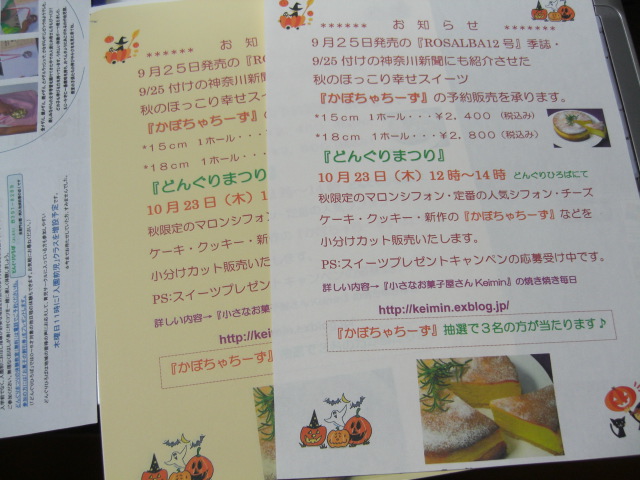 ****** お 知 ら せ *******
9月25日発売の『ROSALBA12号』季誌・
9/25付けの神奈川新聞にも紹介させた
秋のほっこり幸せスイーツ
『かぼちゃちーず』の予約販売を承ります。
*15cm 1ホール・・・￥2，400（税込み）
*18cm 1ホール・・・￥2，800（税込み）
『どんぐりまつり』
10月23日（木）12時～14時 どんぐりひろばにて
秋限定のマロンシフォン・定番の人気シフォン・チーズ
ケーキ・クッキー・新作の『かぼちゃちーず』などを
小分けカット販売いたします。
PS:スイーツプレゼントキャンペンの応募受け中です。
詳しい内容→『小さなお菓子屋さんKeimin』の焼き焼き毎日
http://keimin.exblog.jp/
『かぼちゃちーず』抽選で3名の方が当たります♪
****** お 知
9月25日発売の『R
9/25付けの神奈川新聞
秋のほっこり幸せスイー
『かぼちゃちーず』の
*15cm 1ホール・・・
*18cm 1ホール・・・
『どんぐりまつり
10月23日（木）1
秋限定のマロンシフォン
ケーキ・クッキー・新
小分けカット販売いた
PS:スイーツプレゼン
詳しい内容→『小さな
http://kei
『かぼちゃちーず
木曜日11時に「入園前児」クラスを増設予定です。